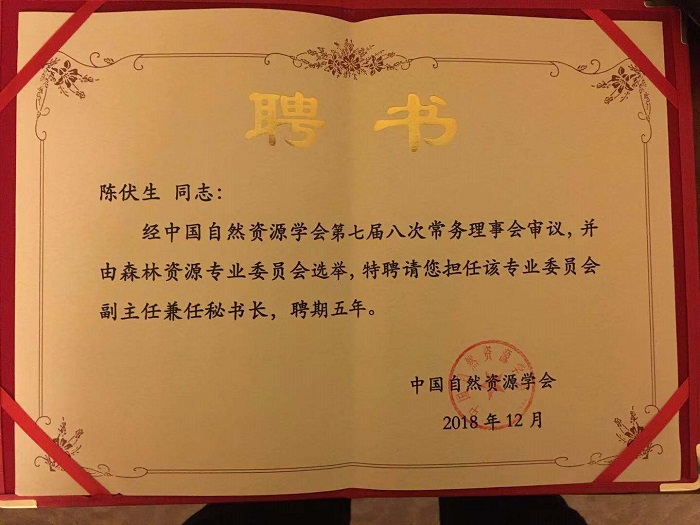 聘书
陈伏生 同志：
经中国自然资源学会第七届八次常务理事会审议，并
由森林资源专业委员会选举，特聘请您担任该专业委员会
副主任兼任秘书长，聘期五年。
中国自然资源学会
2018年12月